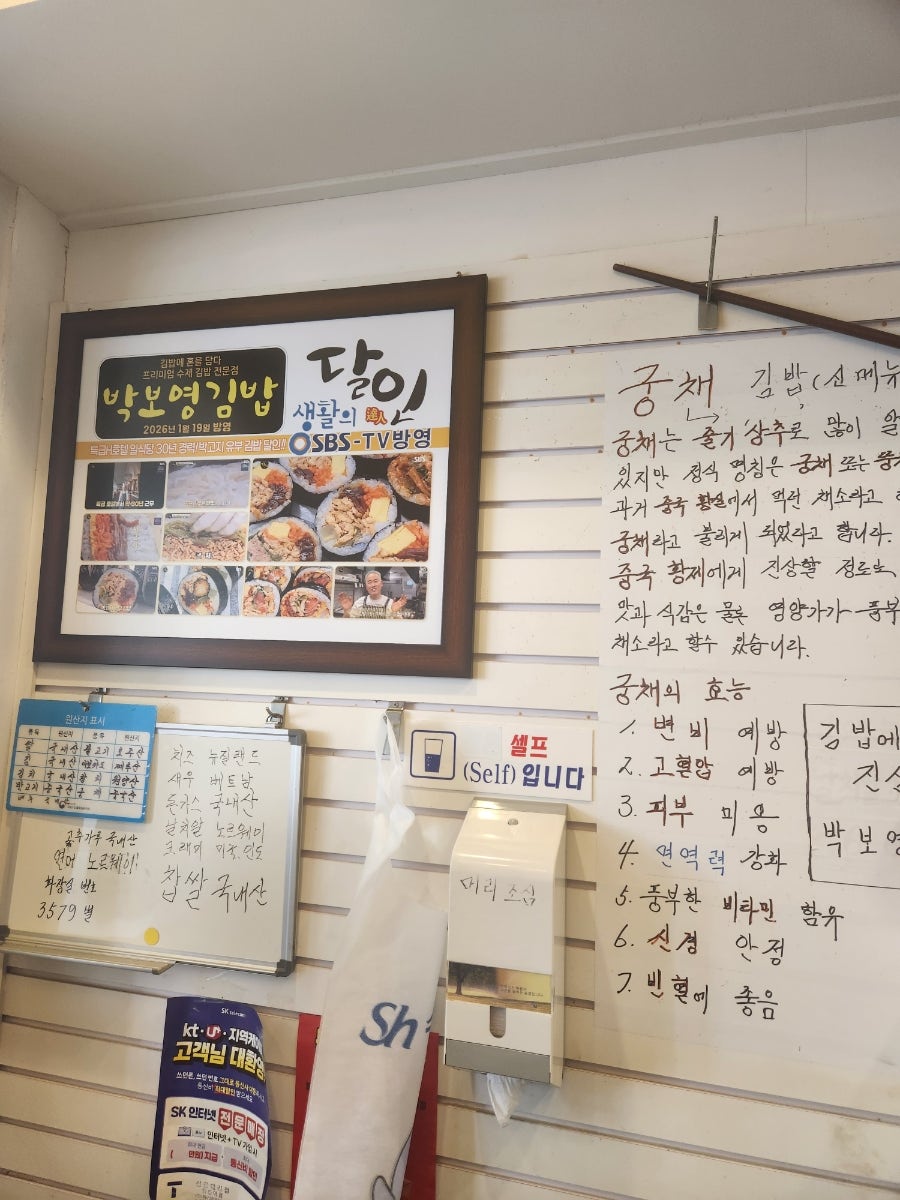 김밥에 혼을 담다
프리미엄 수제 김밥 전문점
박보영김밥
2026년 1월 19일 방영
생활의 달인 達人
SBS-TV방영
특급H호텔 일식당 30년 경력! 박고지 유부 김밥 달인!!
SBS
궁채 김밥(신메뉴
궁채는 줄기 상추로 많이 알
있지만 정식 명칭은 궁채 또는
과거 중국 황실에서 먹던 채소라고
궁채라고 불리게 되었다고 합니다.
중국 황제에게 진상할 정도로
맛과 식감은 물론 영양가가 풍부
채소라고 할수 있습니다.
궁채의 효능
1. 변비 예방
2. 고혈압 예방
3. 피부 미용
4. 면역력 강화
5. 풍부한 비타민 함유
6. 신경 안정
7. 빈혈에 좋음
김밥에
진상
박보영
원산지 표시
품목 원산지 품목 원산지
쌀 국내산 불고기 호주산
김치 국내산 참치 원양산
고추가루 국내산
연어 노르웨이
화장실 번호
3579 별
치즈 뉴질랜드
새우 베트남
돈까스 국내산
날치알 노르웨이
크래미 미국, 인도
찹쌀 국내산
셀프
(Self) 입니다
머리 조심
Sh
SK telecom
kt · U+ · 지역케이블
고객님 대환영
SK 인터넷 전문매장
인터넷+TV 가입시
만원) 지급
통신비 할인